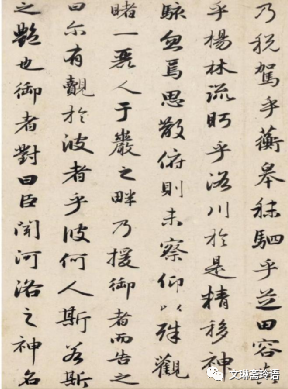 乃税駕乎蘅皋秣駟乎芝田容
乎楊林流眄乎洛川於是精移神
駭忽焉思散俯則未察仰以殊觀
睹一麗人于巖之畔乃援御者而告之
曰尔有覿於彼者乎彼何人斯若斯
之艷也御者對曰臣聞河洛之神名
文琳斋玲语